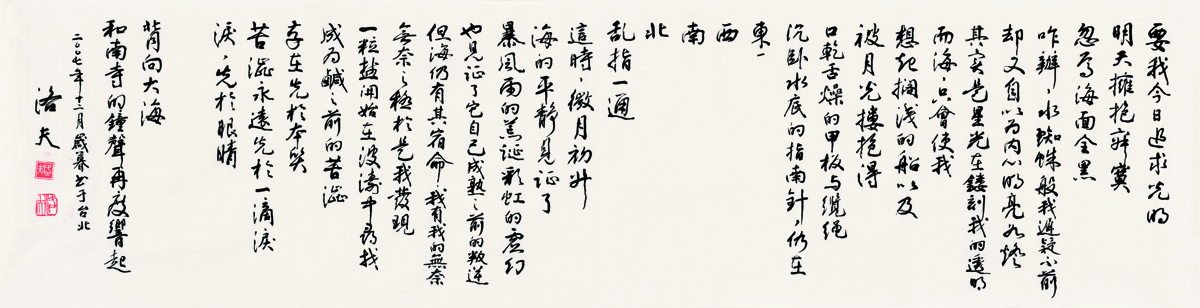 要我今日追求光明
明天擁抱
忽焉海面全黑
咋辦，水蜘蛛般我遲疑不前
却又自以为内心明亮如燈
其实是星光在鏤刻我的透明
而海，只會使我
想起擱浅的船以及
被月光摟抱得
口乾舌燥的甲板与纜绳
沉卧水底的指南針，仍在
東，
西
南
北
乱指一通
這時，微月初升
海的平静見证了
暴風雨的荒诞彩虹的虚幻
也見证了它自己成熟之前的叛逆
但海仍有其宿命，我有我的無奈
無奈之極於是我發現
一粒盐開始在波濤中尋找
成为鹹之前的苦澀
存在先於本質
苦澀永遠先於一滴淚
淚，先於眼睛
背向大海
和南寺的鐘聲再度響起
二〇〇七年十二月歲暮书于台北
洛夫